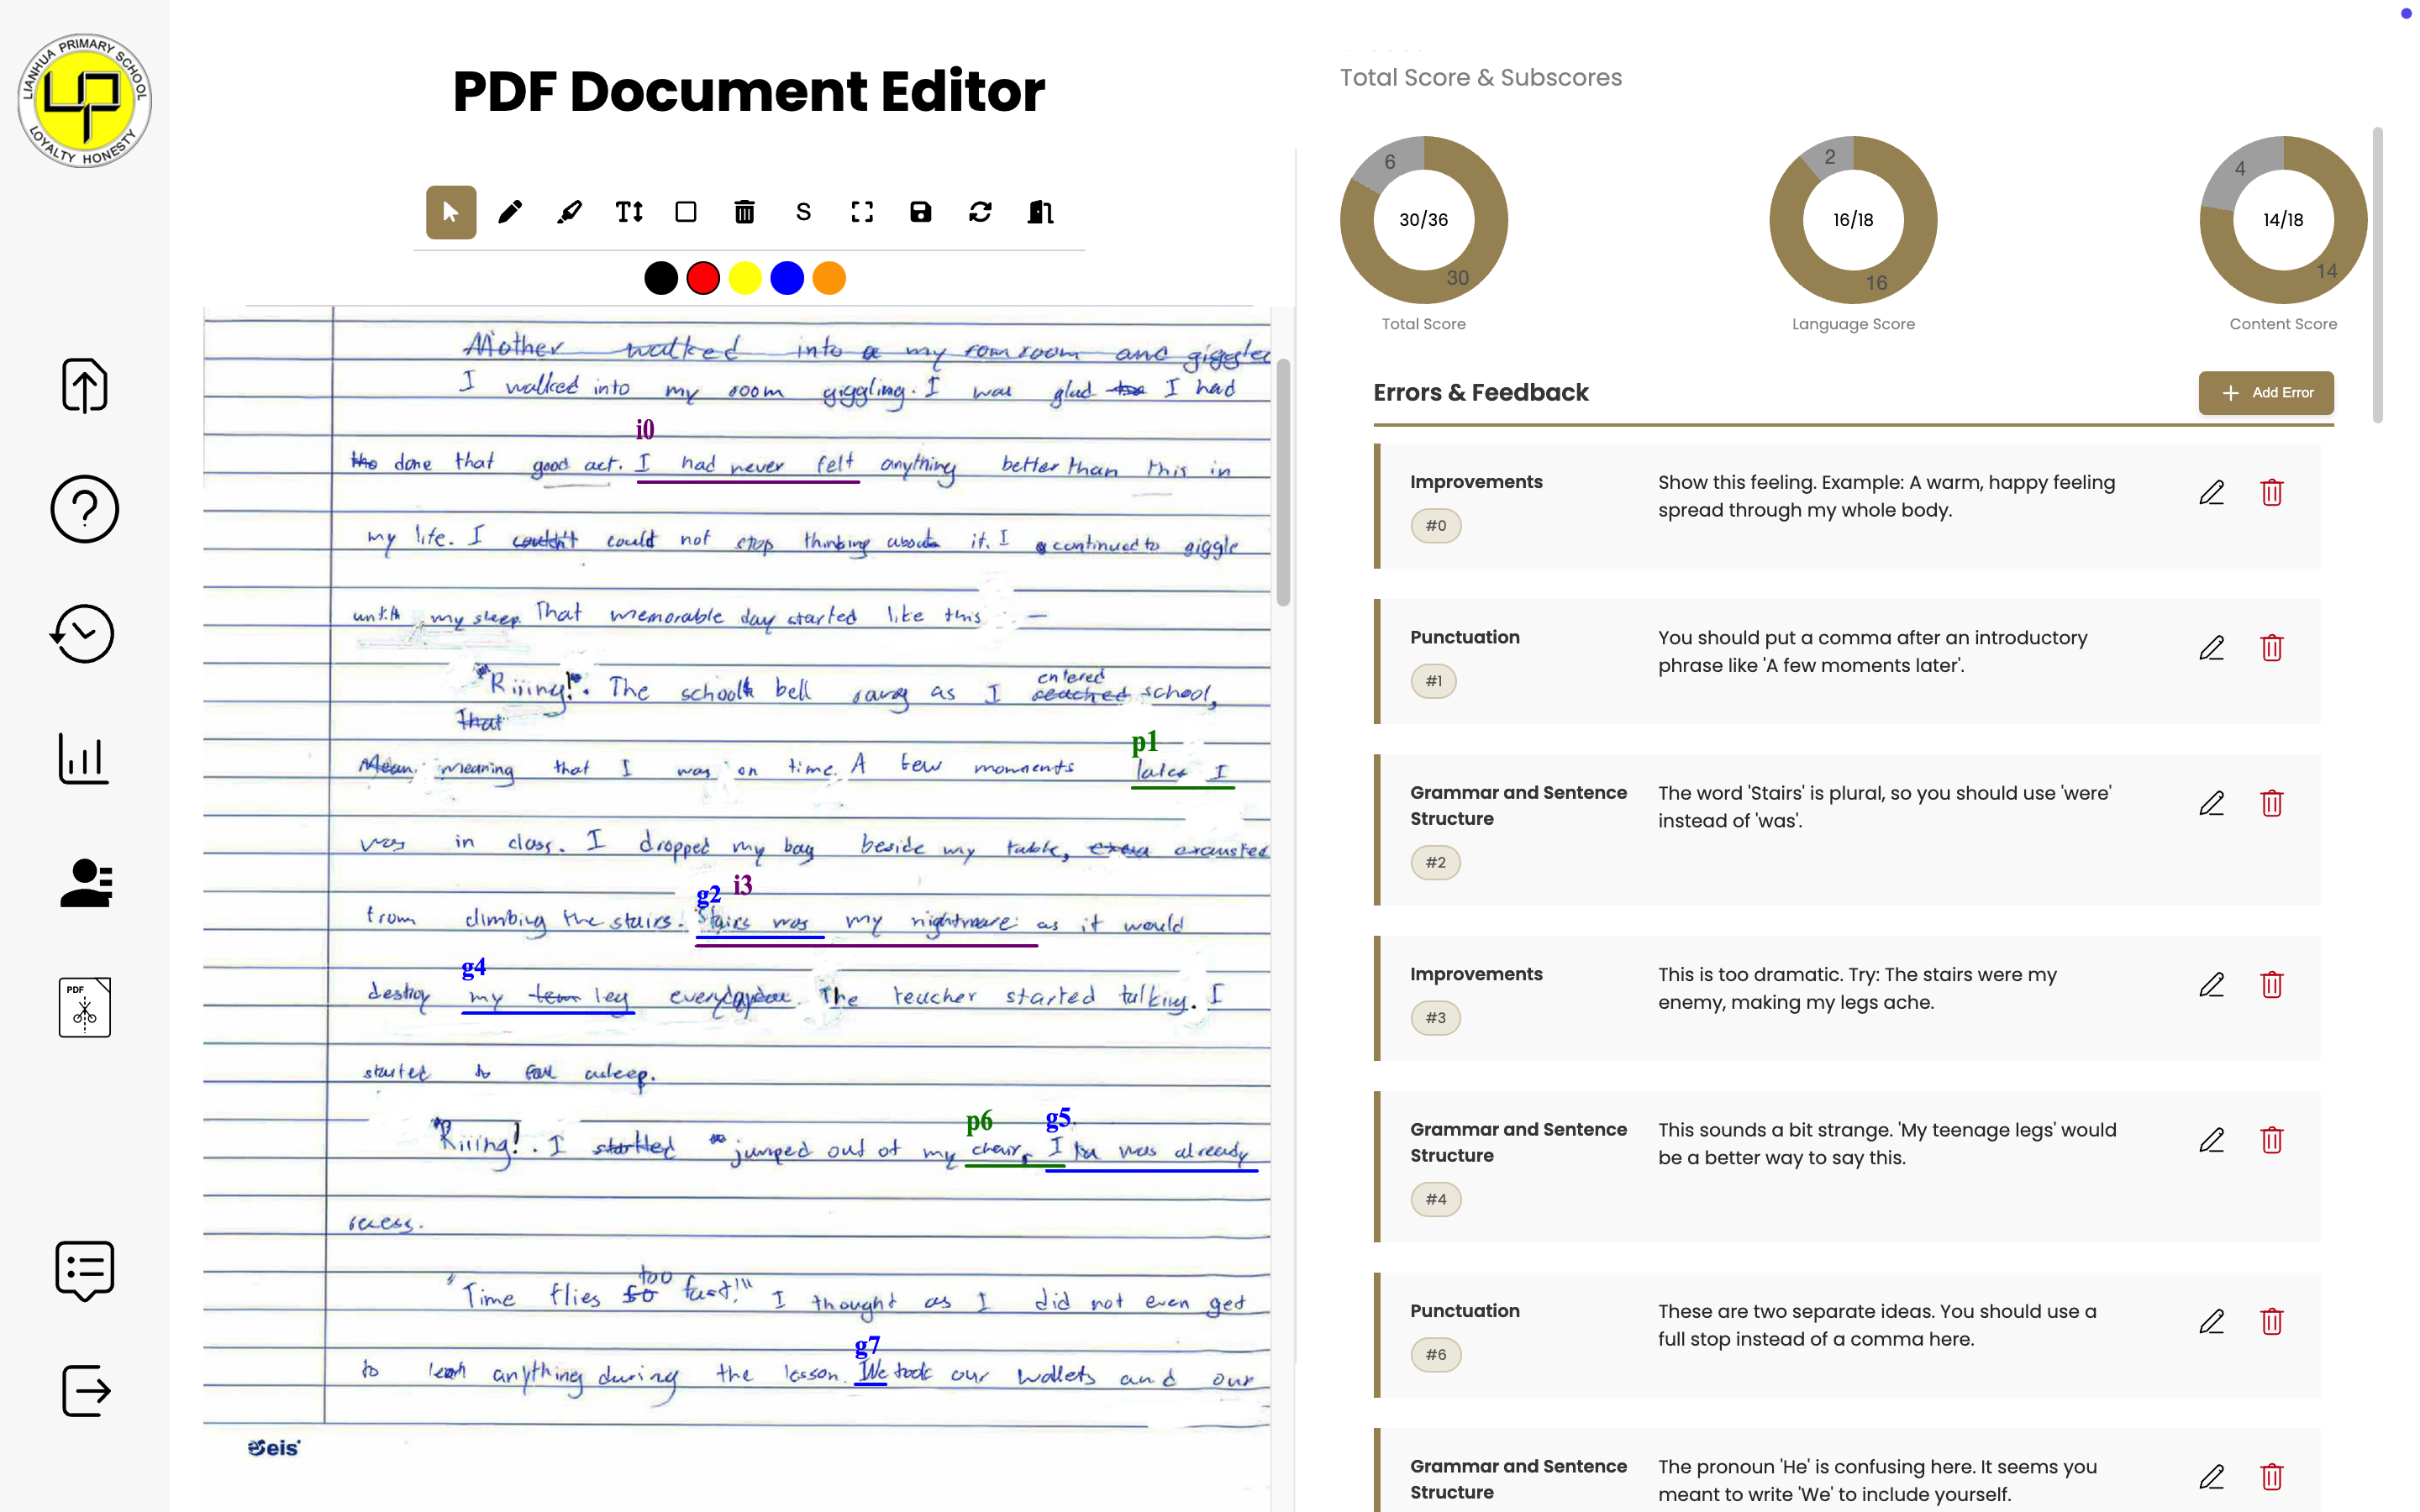 LIANHUA PRIMARY SCHOOL
LOYALTY HONESTY
PDF
PDF Document Editor
T
S
Mother walked into a my rom room and giggled
I walked into my room giggling. I was glad I had
i0
tho done that good act. I had never felt anything better than this in
my life. I couldn't could not stop thinking about it. I continued to giggle
my sleep. That memorable day started like this —
"Riiing!". The school bell rang as I reached entered school,
That
p1
Mean meaning that I was on time. A few momnents later I
was in class. I dropped my bag beside my table, exausted
g2 i3
from climbing the stairs. Stairs was my nightmare as it would
g4
destroy my leg everyday. The teacher started talking. I
started to fall asleep.
p6 g5
"Riiing!". I startled jumped out of my chair, I was already
recess.
"Time flies so too fast!" I thought as I did not even get
g7
to learn anything during the lesson. We took our wallets and our
eis
Total Score & Subscores
6
30/36
30
Total Score
2
16/18
16
Language Score
4
14/18
14
Content Score
Errors & Feedback
+ Add Error
Improvements
#0
Show this feeling. Example: A warm, happy feeling
spread through my whole body.
Punctuation
#1
You should put a comma after an introductory
phrase like 'A few moments later'.
Grammar and Sentence
Structure
#2
The word 'Stairs' is plural, so you should use 'were'
instead of 'was'.
Improvements
#3
This is too dramatic. Try: The stairs were my
enemy, making my legs ache.
Grammar and Sentence
Structure
#4
This sounds a bit strange. 'My teenage legs' would
be a better way to say this.
Punctuation
#6
These are two separate ideas. You should use a
full stop instead of a comma here.
Grammar and Sentence
Structure
The pronoun 'He' is confusing here. It seems you
meant to write 'We' to include yourself.